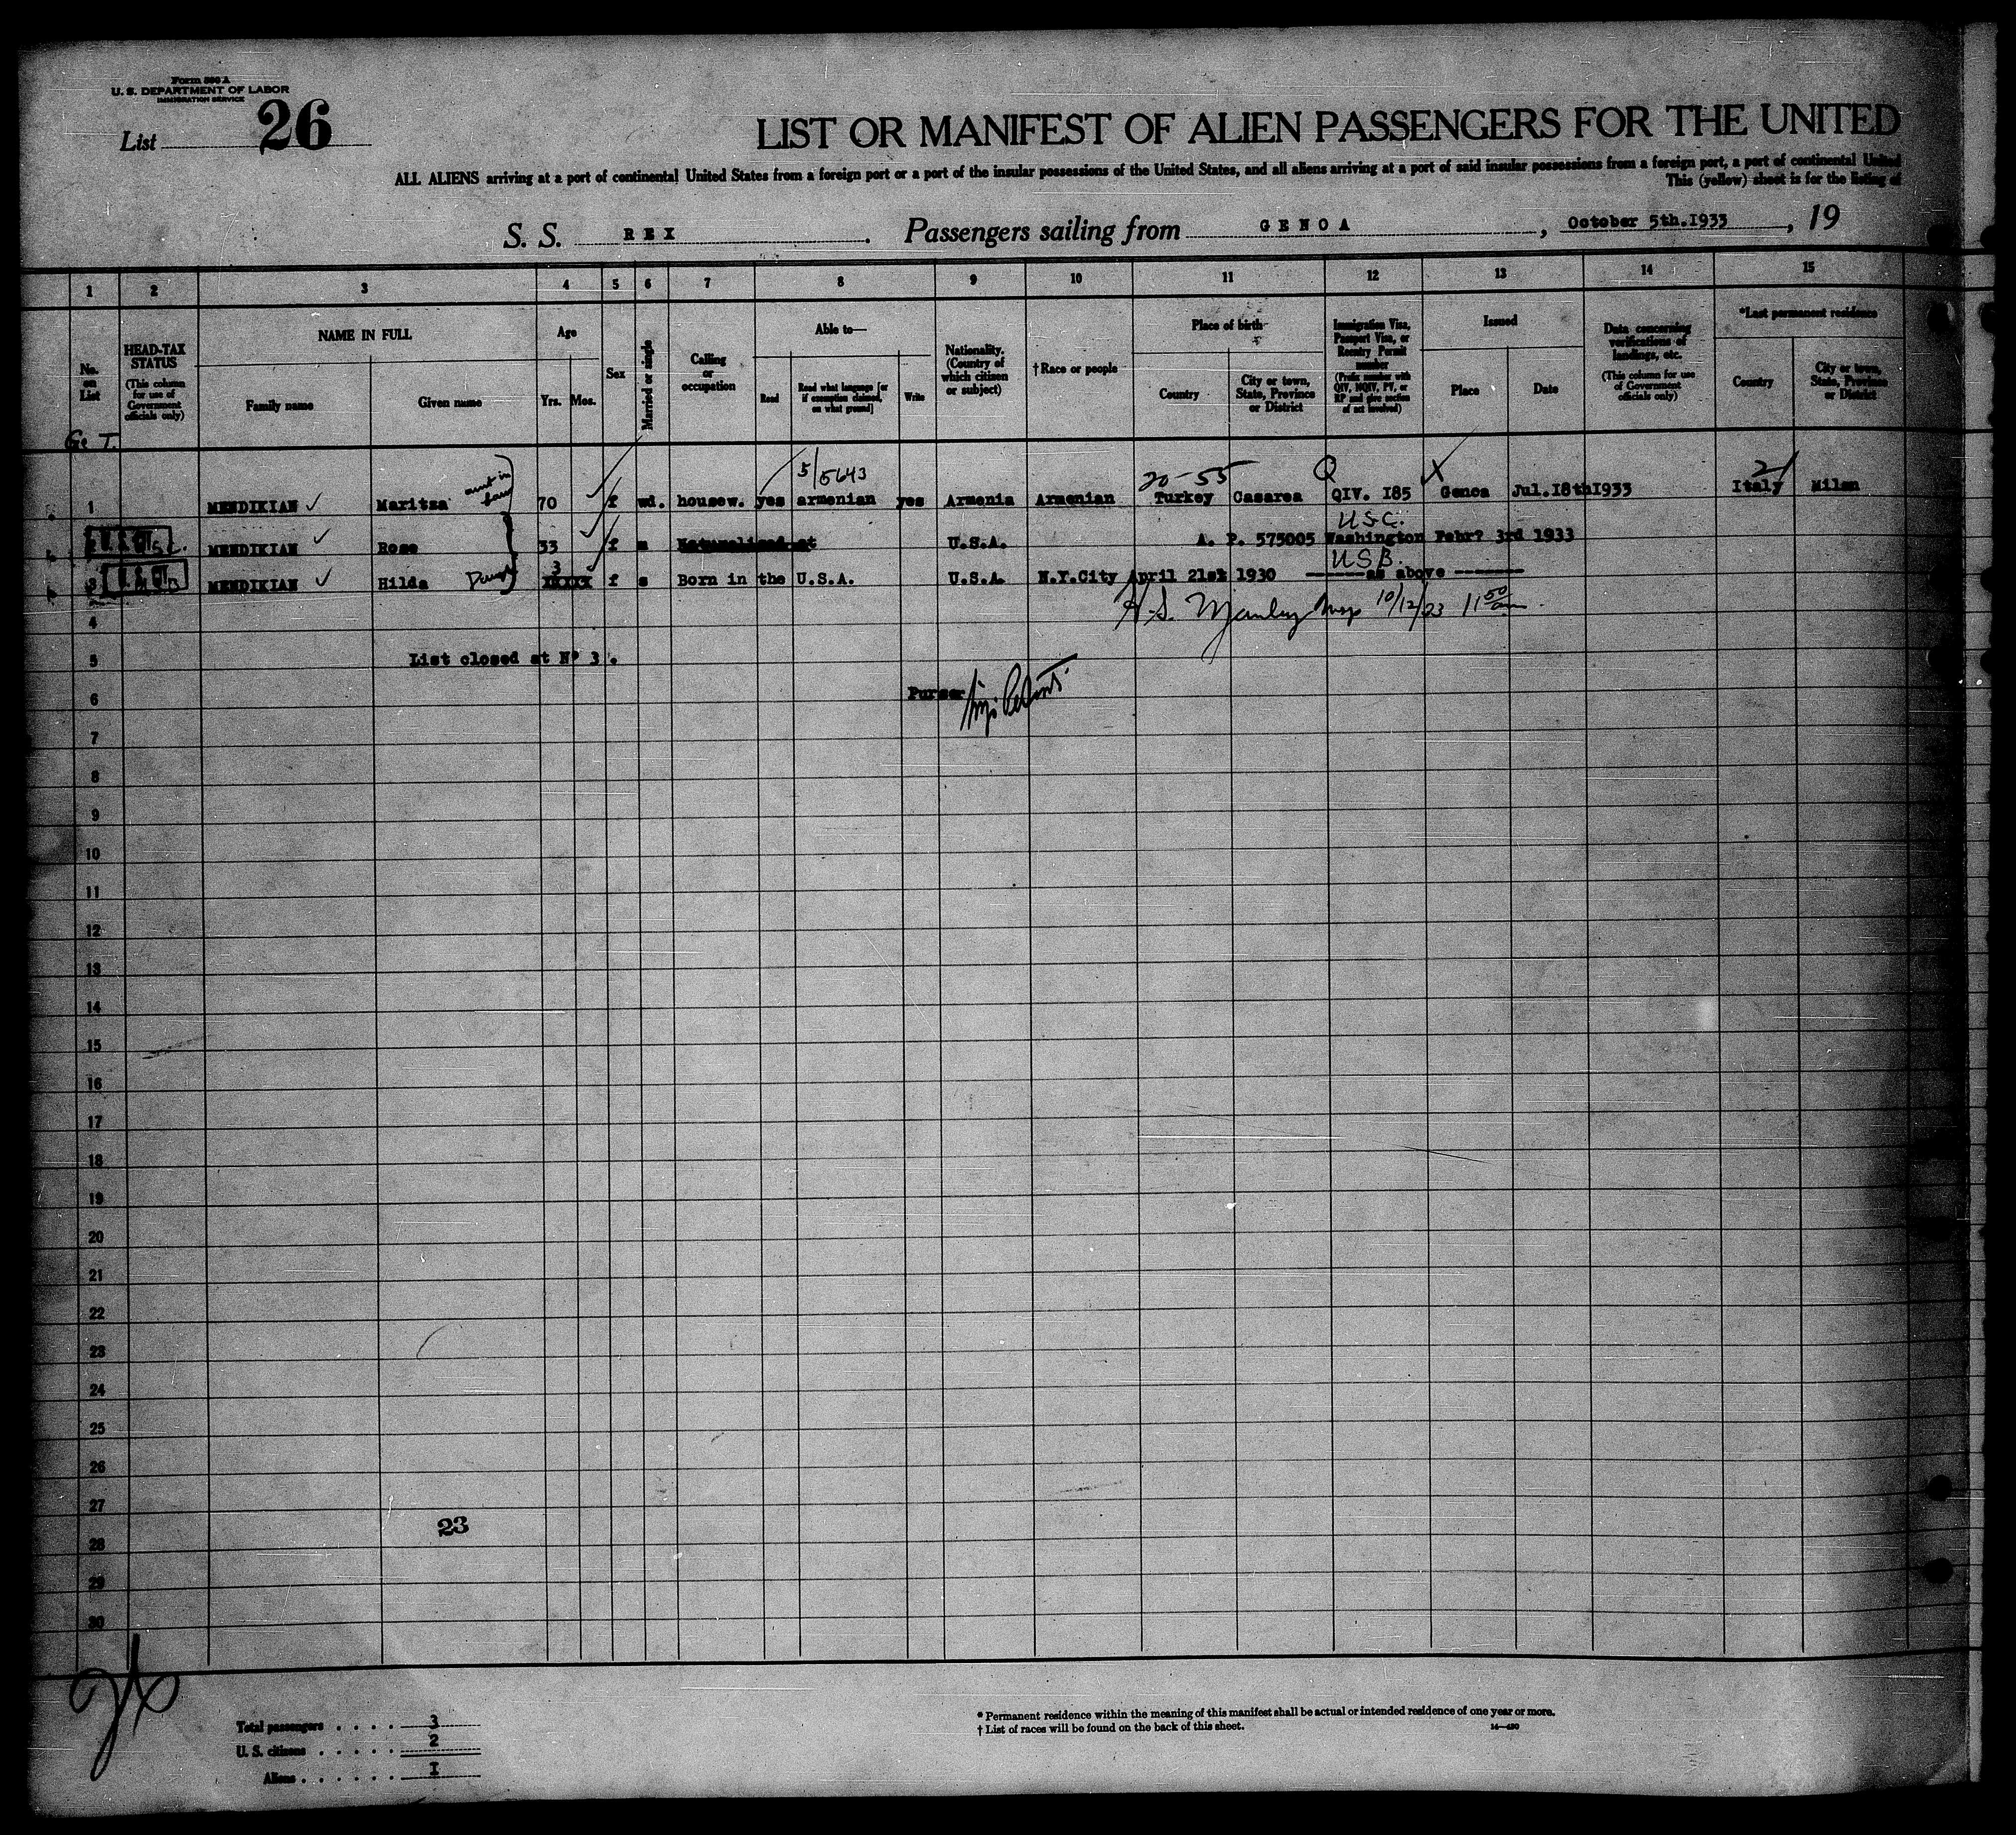 Form 500 A
U. S. DEPARTMENT OF LABOR
IMMIGRATION SERVICE
List 26
LIST OR MANIFEST OF ALIEN PASSENGERS FOR THE UNITED
ALL ALIENS arriving at a port of continental United States from a foreign port or a port of the insular possessions of the United States, and all aliens arriving at a port of said insular possessions from a foreign port, a port of continental United
This (yellow) sheet is for the listing of
S. S. REX. Passengers sailing from GENOA, October 5th.I933, 19
1 2 3 4 5 6 7 8 9 10 11 12 13 14 15
No. on List
HEAD-TAX STATUS (This column for use of Government officials only)
NAME IN FULL
Family name
Given name
Age
Yrs. Mos.
Sex
Married or single
Calling or occupation
Able to—
Read
Read what language [or if exemption claimed, on what ground]
Write
Nationality. (Country of which citizen or subject)
† Race or people
Place of birth
Country
City or town, State, Province or District
Immigration Visa, Passport Visa, or Reentry Permit number (Prefix number with QIV, NQIV, PV, or RP and give section of act involved)
Issued
Place
Date
Data concerning verifications of landings, etc. (This column for use of Government officials only)
*Last permanent residence
Country
City or town, State, Province or District
5/5643 20-55 Q X
1 MENDIKIAN Maritza aunt in law 70 f wd. housew. yes armenian yes Armenia Armenian Turkey Casarea QIV. I85 Genoa Jul.I8thI933 Italy Milan
U.S.C.
2 MENDIKIAN Rose 33 f m Naturalised at U.S.A. A. P. 575005 Washington Febr? 3rd 1933
3 U.S.B.
3 MENDIKIAN Hilda f s Born in the U.S.A. U.S.A. N.Y.City April 21st 1930 as above
4 10/12/33 11 50 am
5 List closed at Nº 3.
6 Purser
7
8
9
10
11
12
13
14
15
16
17
18
19
20
21
22
23
24
25
26
27
23
28
29
30
Total passengers . . . . 3
U. S. citizens . . . . . 2
Aliens . . . . . . I
* Permanent residence within the meaning of this manifest shall be actual or intended residence of one year or more.
† List of races will be found on the back of this sheet.
14—430